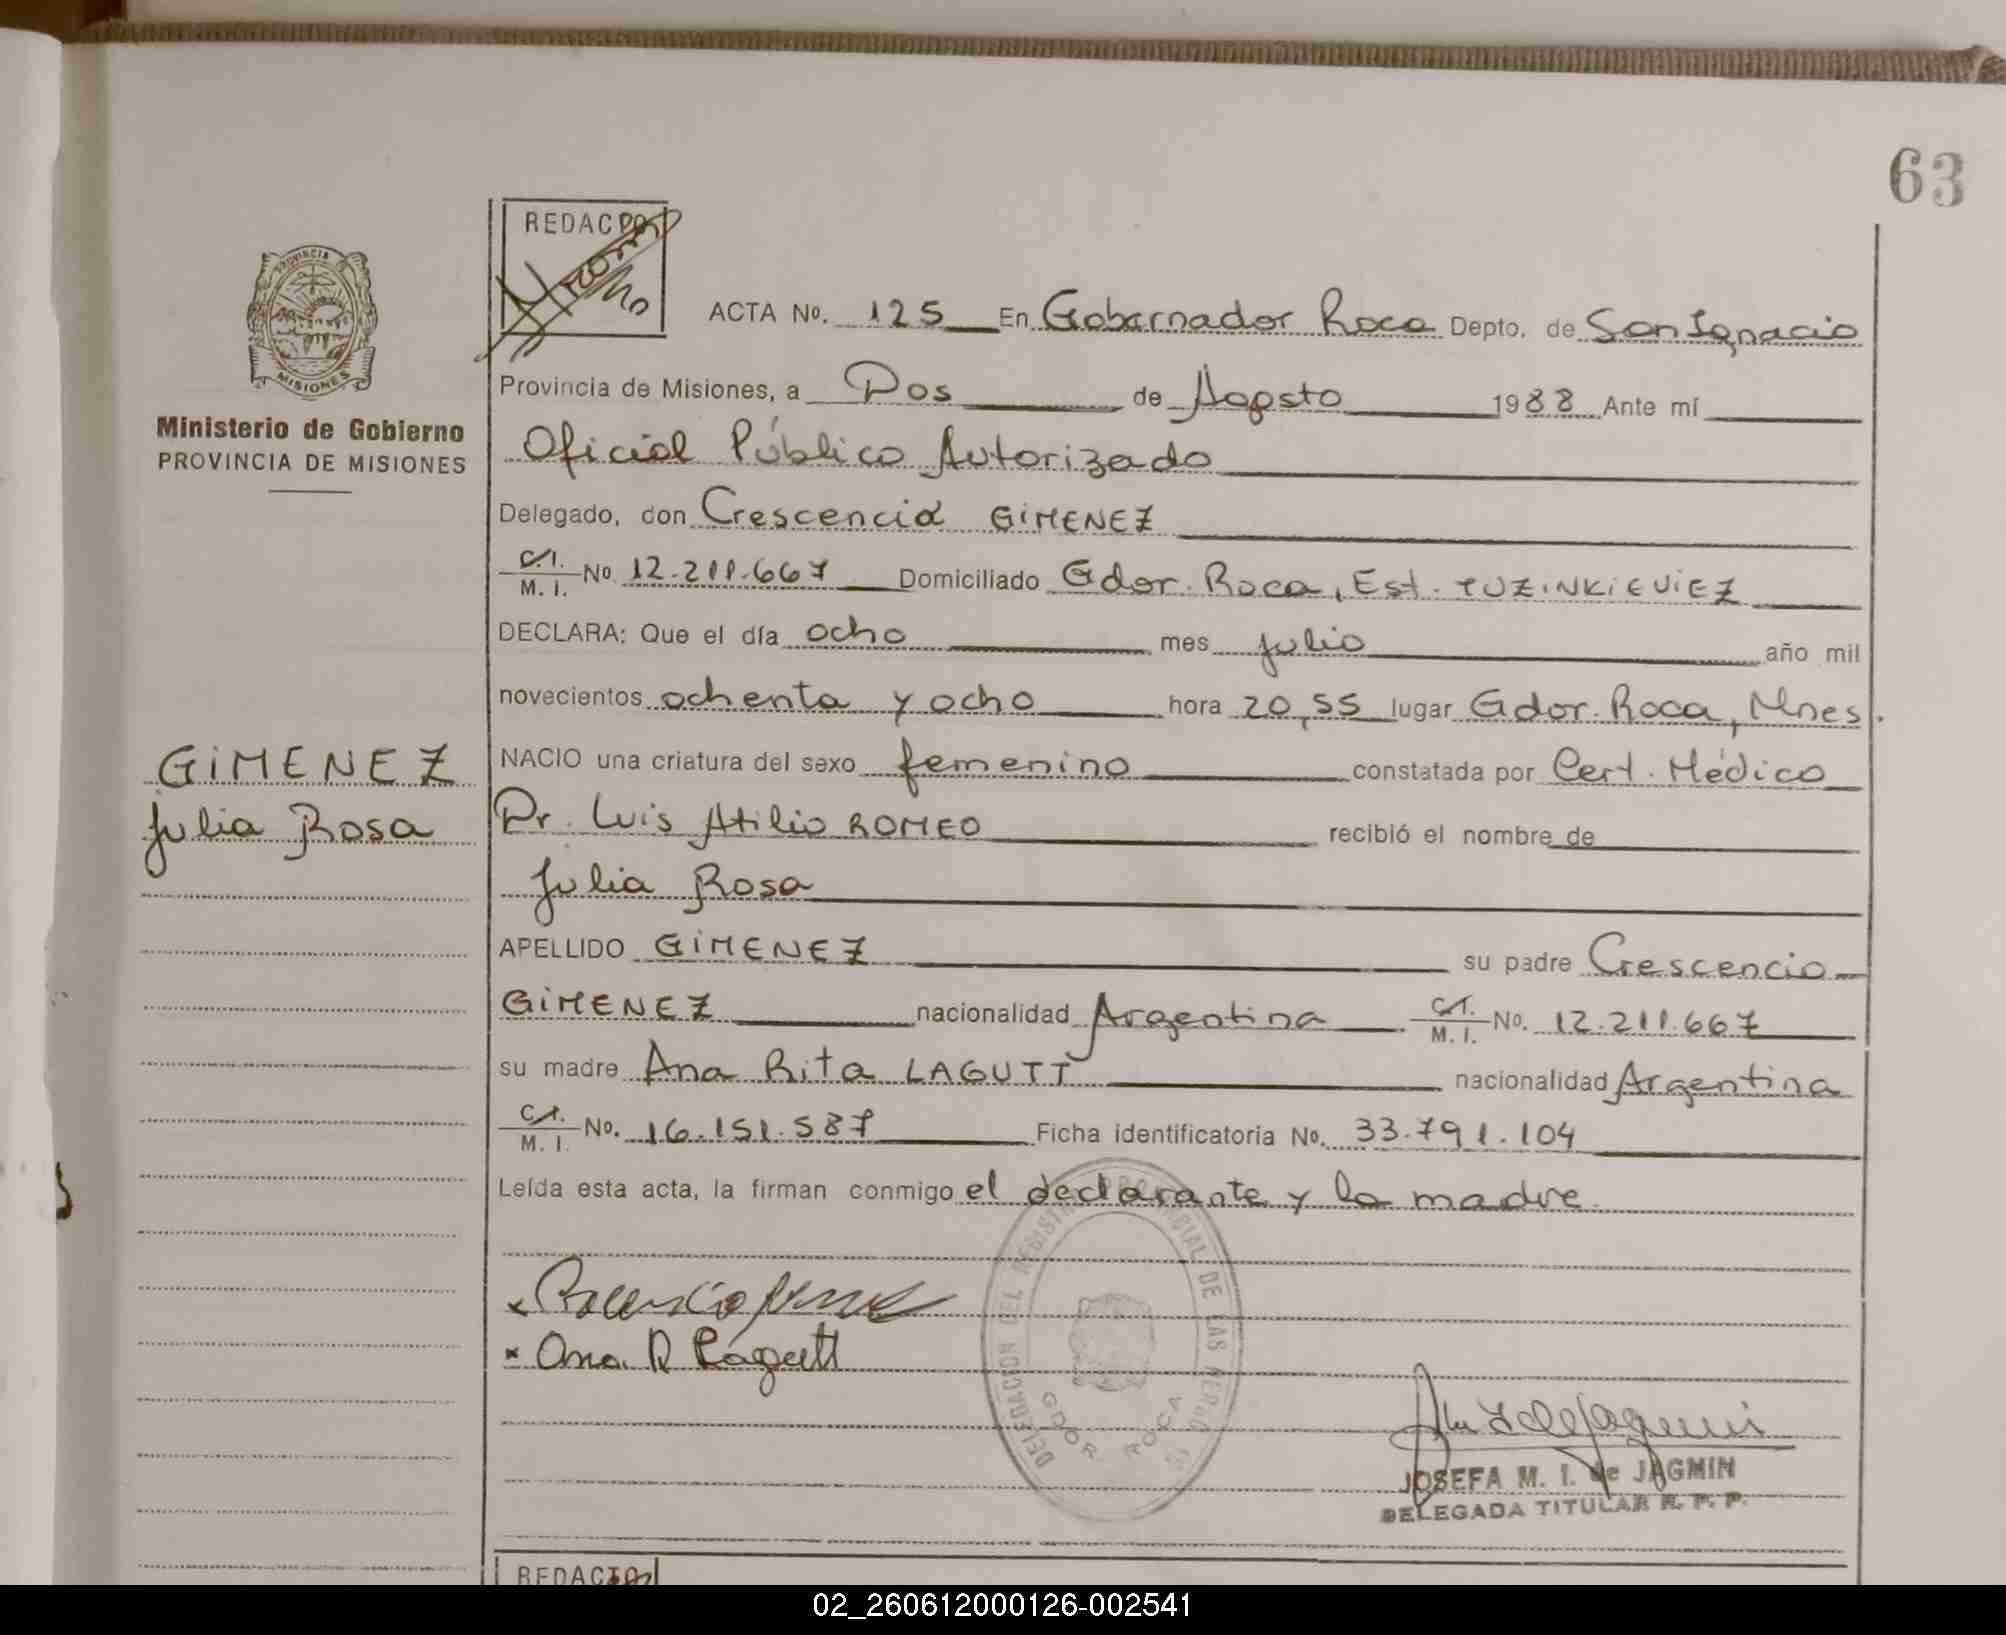 63
REDACTO
PROVINCIA
MISIONES
ACTA Nº. 125 En Gobernador Roca Depto. de San Ignacio
Provincia de Misiones, a Dos de Agosto 1988 Ante mí
Ministerio de Gobierno
PROVINCIA DE MISIONES
Oficial Público Autorizado
Delegado, don Crescencio GIMENEZ
C.I. M. I. Nº 12.211.667 Domiciliado Gdor. Roca, Est. TUZINKIEVIEZ
DECLARA: Que el día ocho mes julio año mil
novecientos ochenta y ocho hora 20,55 lugar Gdor. Roca, Mnes.
GIMENEZ
Julia Rosa
NACIO una criatura del sexo femenino constatada por Cert. Médico
Dr. Luis Atilio ROMEO recibió el nombre de
Julia Rosa
APELLIDO GIMENEZ su padre Crescencio
GIMENEZ nacionalidad Argentina C.I. M. I. Nº. 12.211.667
su madre Ana Rita LAGUTT nacionalidad Argentina
C.I. M. I. Nº. 16.151.587 Ficha identificatoria Nº. 33.791.104
Leída esta acta, la firman conmigo el declarante y la madre.
Ana R Lagutt
DELEGACION DEL REGISTRO PROVINCIAL DE LAS PERSO
GDOR ROCA
JOSEFA M. I. de JAGMIN
DELEGADA TITULAR R. P. P.
REDACTO
02_260612000126-002541